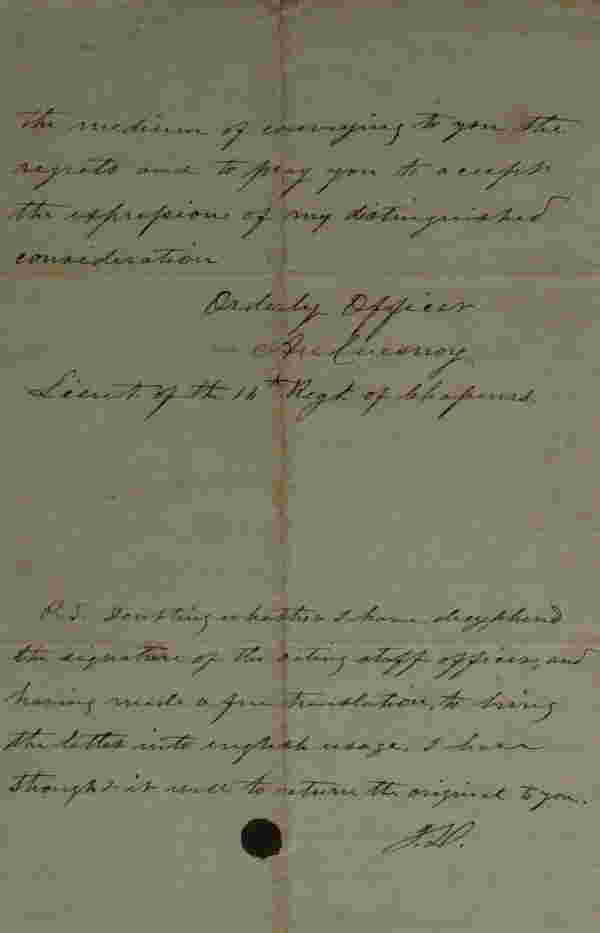 the medium of conveying to you the
regrets and to pray you to accept
the expressions of my distinguished
consideration
Orderly Officer
Lieut of the 16th Regt. of Chasseurs.
P.S. Doubting whether I have decyphered
the signature of the acting staff officer, and
having made a free translation, to bring
the letter into english usage, I have
thought it well to return the original to you.